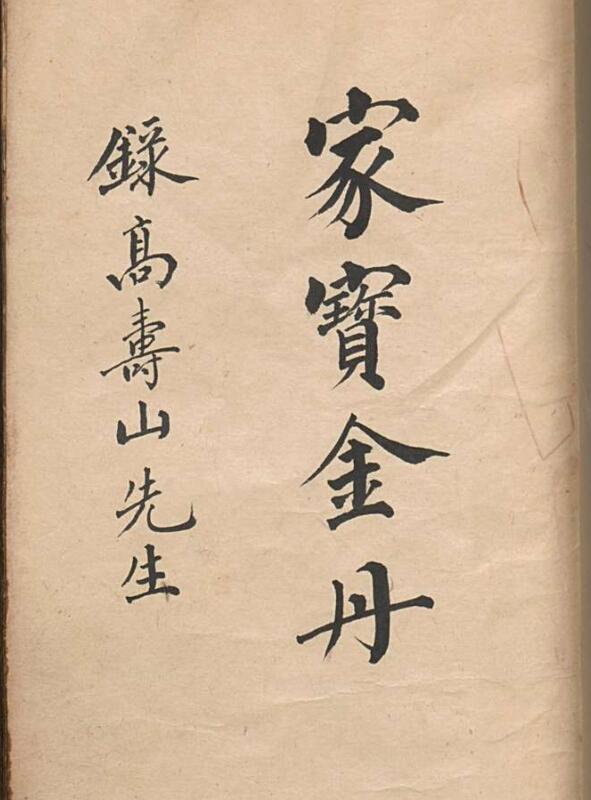 家寶金丹
錄高壽山先生